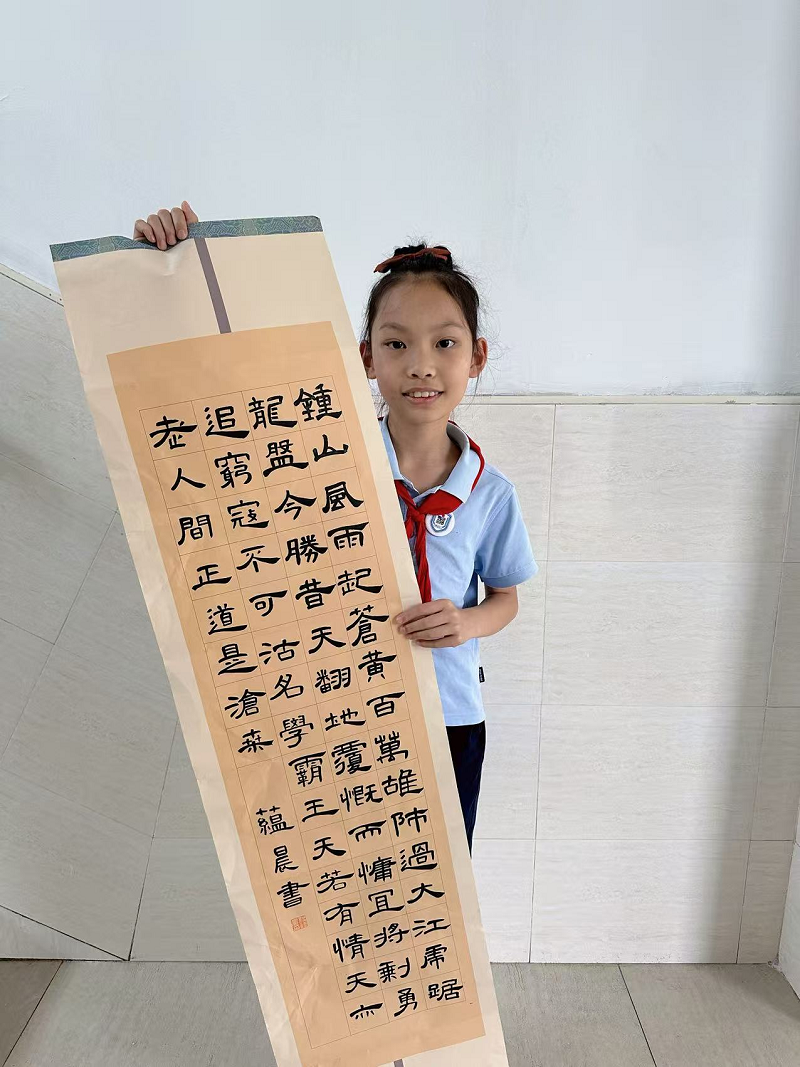 鍾山風雨起蒼黄百萬雄師過大江虎踞
龍盤今勝昔天翻地覆慨而慷宜将剩勇
追窮寇不可沽名學霸王天若有情天亦
老人間正道是滄桒
蘊晨書